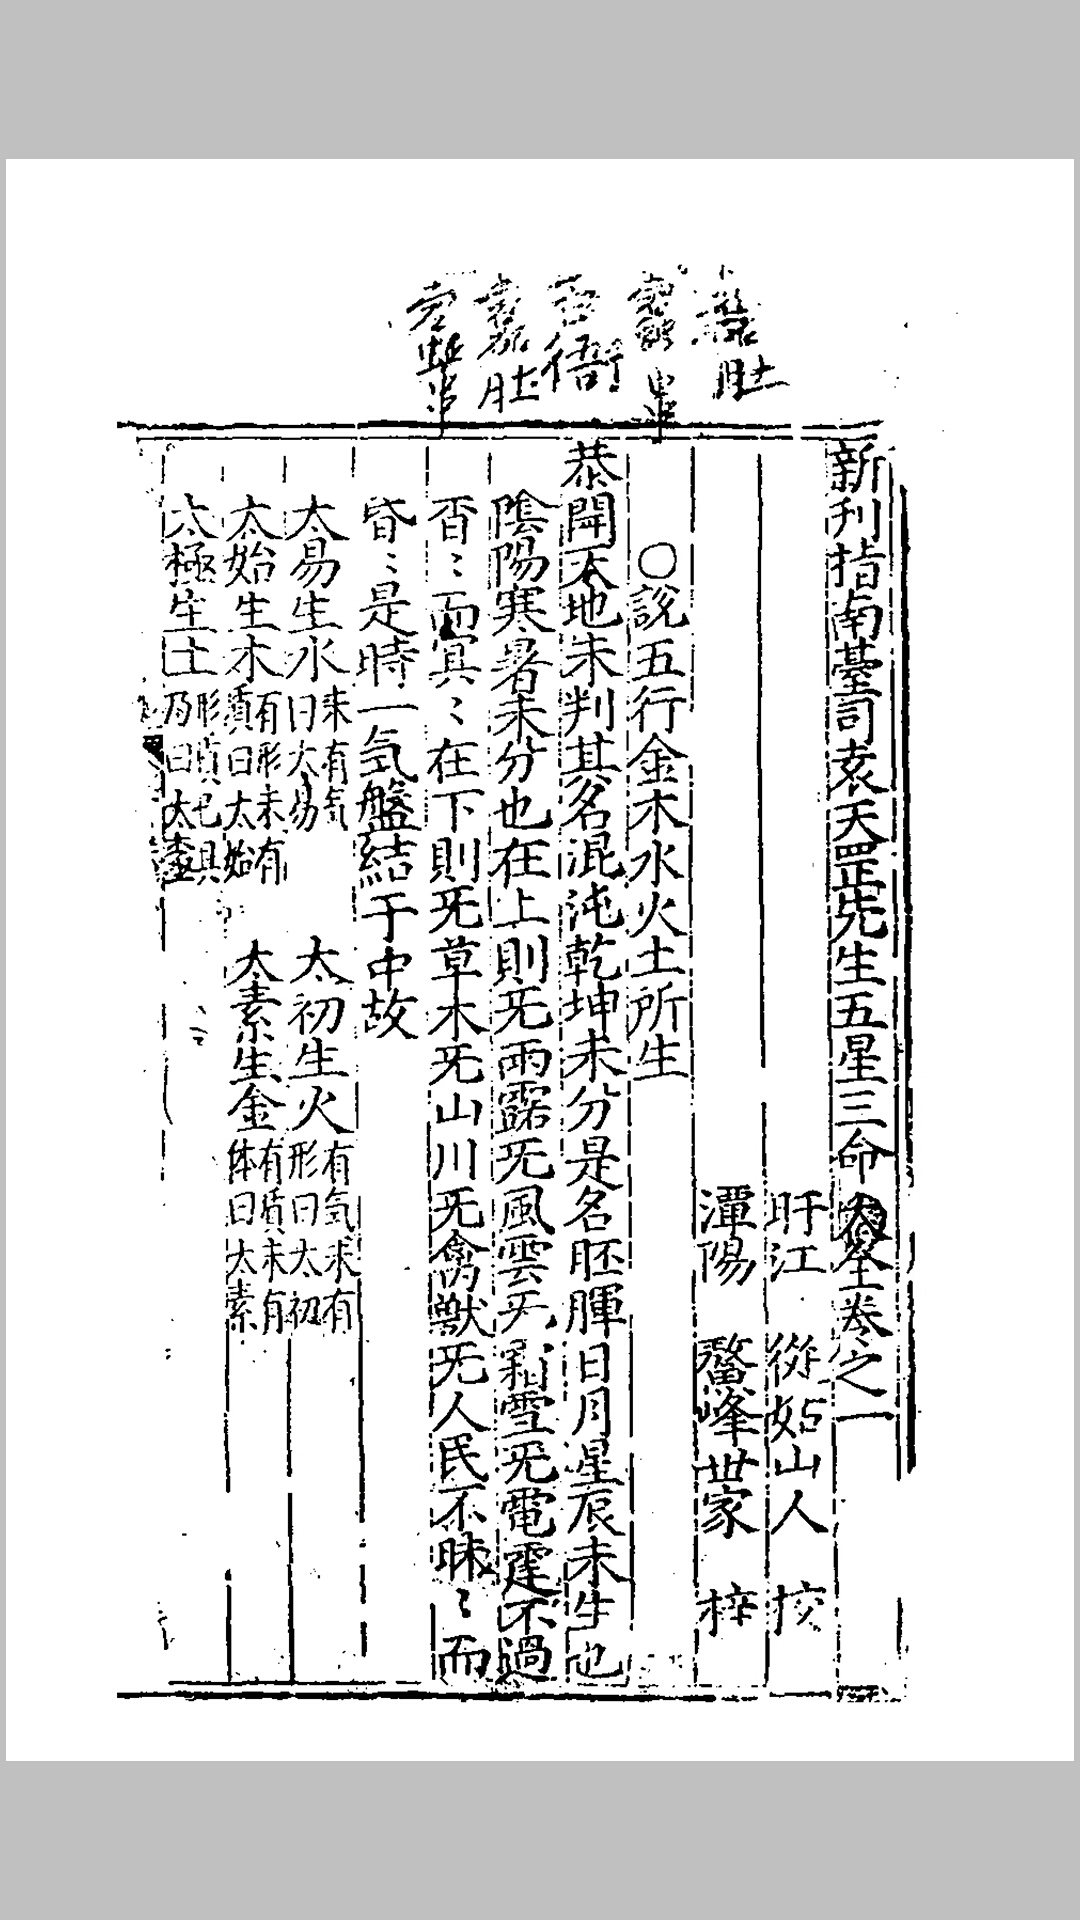 新刊指南臺司袁天罡先生五星三命大全卷之一
盱江　從姑山人　挍
潭陽　鰲峰世家　梓
○說五行金木水火土所生
恭聞天地未判其名混沌乾坤未分是名胚腪日月星辰未生也
陰陽寒暑未分也在上則旡雨露旡風雲旡霜雪旡電霆不過
杳〻而冥〻在下則旡草木旡山川旡禽獸旡人民不昧〻而
昏〻是時一氣盤結于中故
太易生水未有氣曰太易　太初生火有氣未有形曰太初
太始生木有形未有質曰太始　太素生金有質未有体曰太素
太極生土形質已具乃曰太極